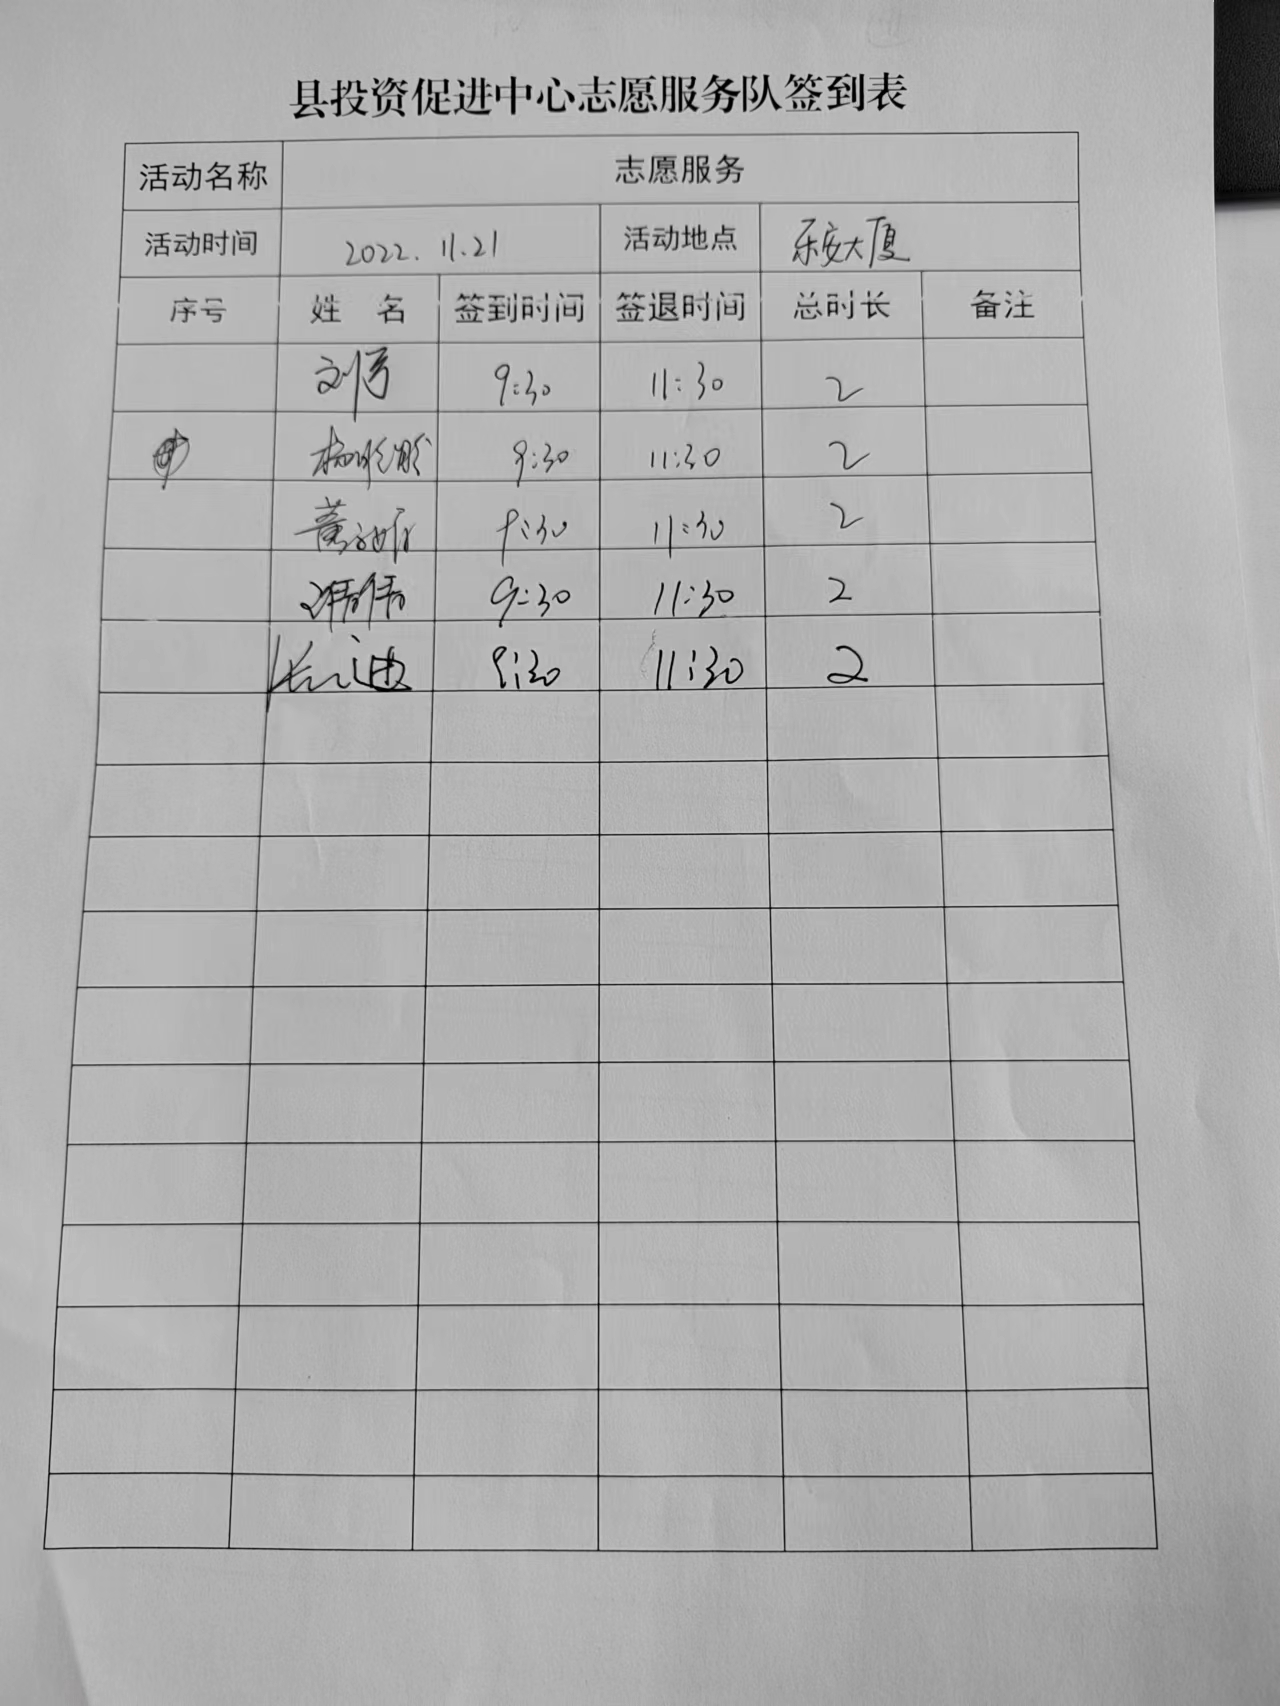 县投资促进中心志愿服务队签到表
活动名称 志愿服务
活动时间 2022.11.21 活动地点 乐安大厦
序号 姓 名 签到时间 签退时间 总时长 备注
刘 9:30 11:30 2
杨 9:30 11:30 2
黄 9:30 11:30 2
9:30 11:30 2
张迪 9:30 11:30 2